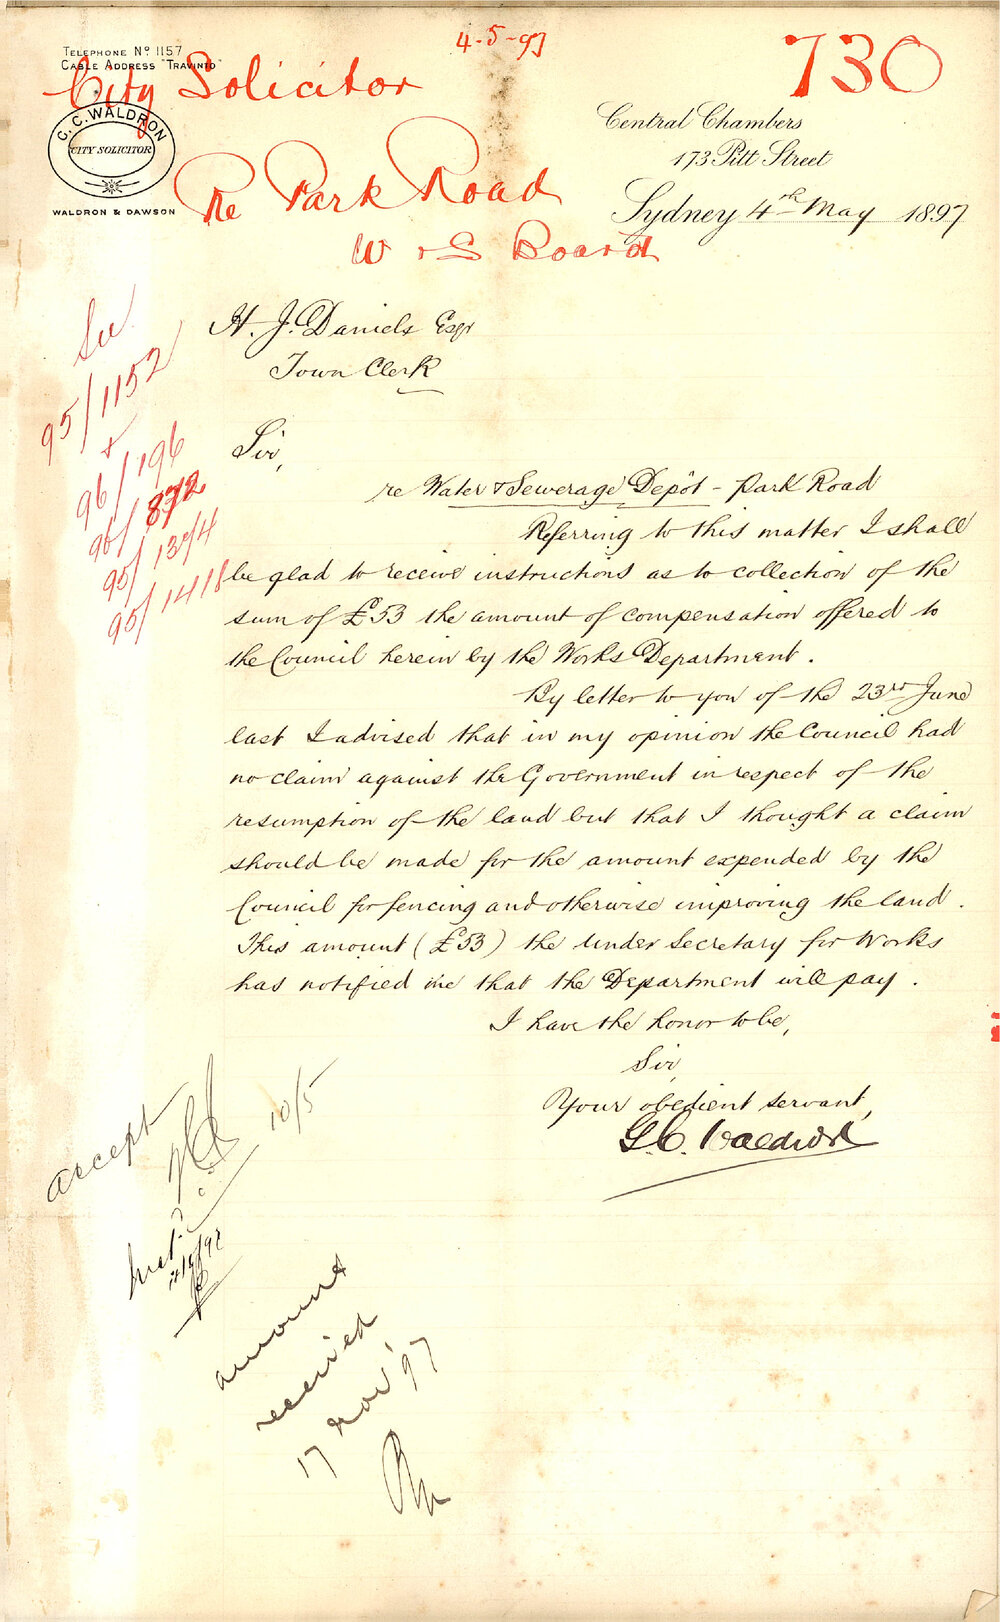 4-5-97
730
TELEPHONE No 1157
CABLE ADDRESS "TRAVINTO"
City Solicitor
C.C. WALDRON
CITY SOLICITOR
WALDRON & DAWSON
Re Park Road
W & S Board
Central Chambers
173 Pitt Street
Sydney 4th May 1897
H. J. Daniels Esqr
Town Clerk
See
95/1152
+
96/196
96/872
95/1374
95/1418
Sir,
re Water & Sewerage Depôt - Park Road
Referring to this matter I shall
be glad to receive instructions as to collection of the
sum of £53 the amount of compensation offered to
the Council herein by the Works Department.
By letter to you of the 23rd June
last I advised that in my opinion the Council had
no claim against the Government in respect of the
resumption of the land but that I thought a claim
should be made for the amount expended by the
Council for fencing and otherwise improving the land.
This amount (£53) the Under Secretary for Works
has notified me that the Department will pay.
I have the honor to be,
Sir,
Your obedient servant,
G.C. Waldron
accept
10/5
amount
received
17 Nov '97